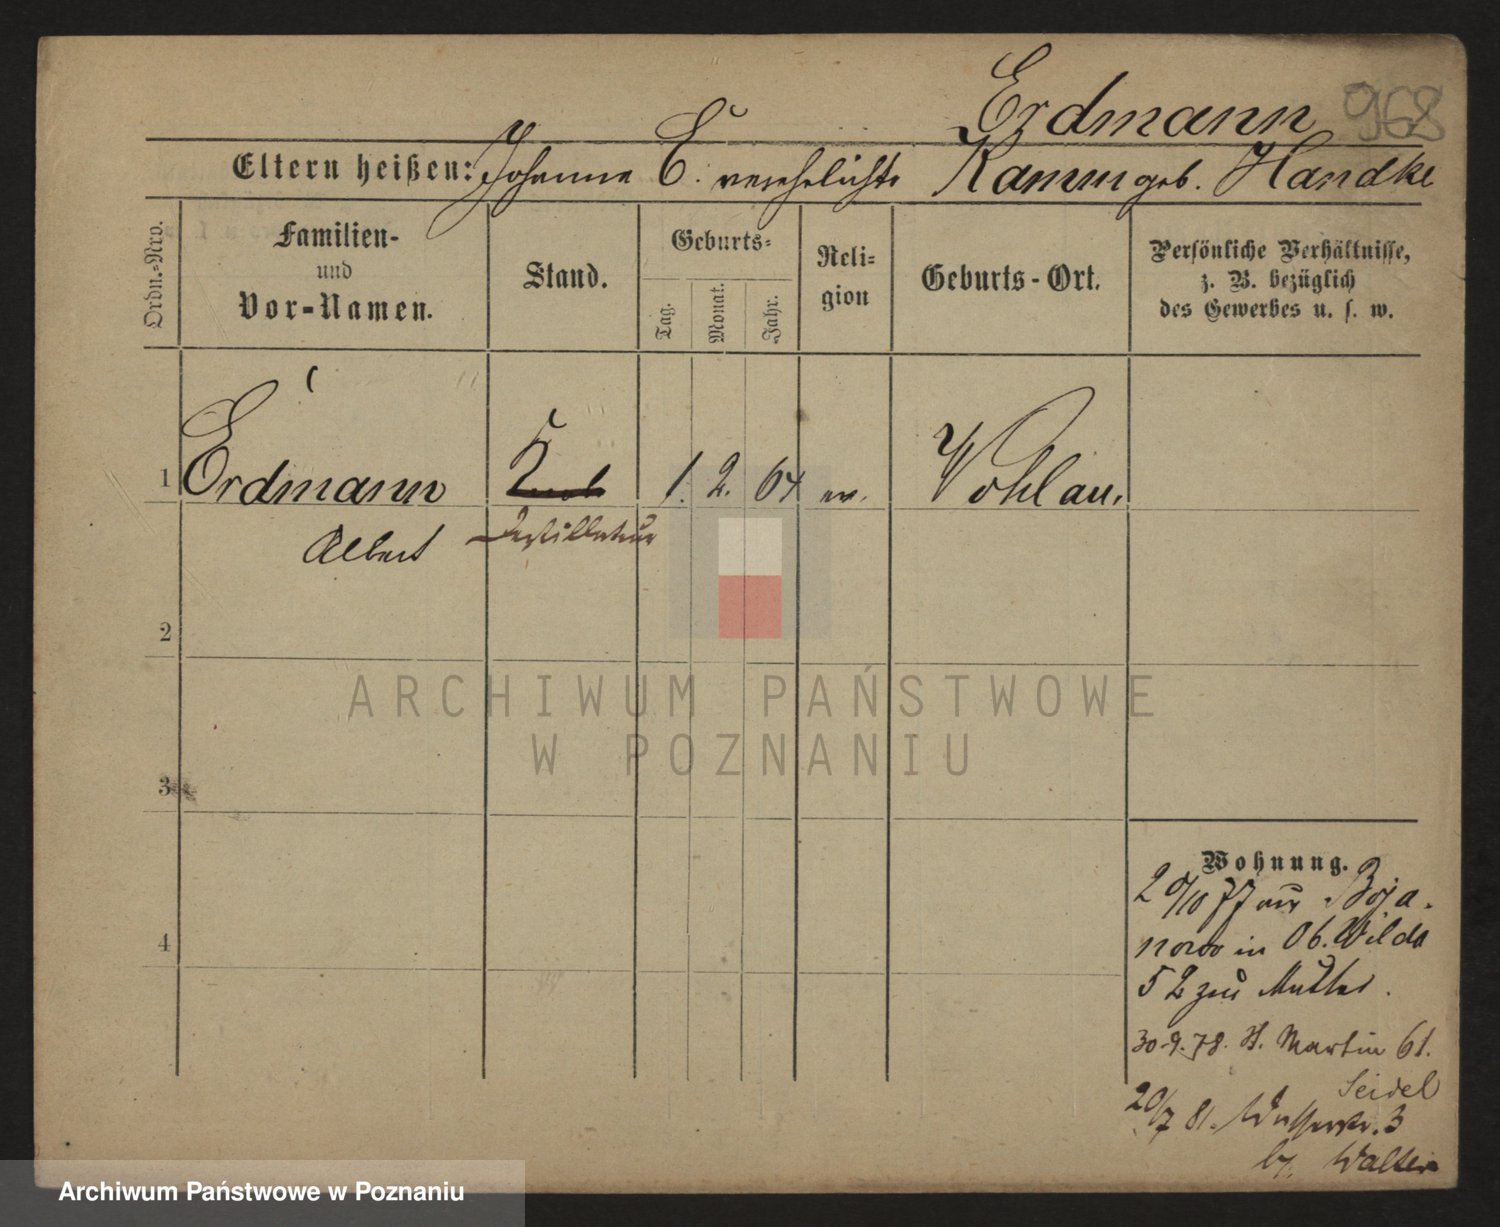 Erdmann 968
Eltern heißen: Johanna E. verehelichte Kamm geb. Handke
Ordn.-Nro.
Familien-
und
Vor-Namen.
Stand.
Geburts-
Tag.
Monat.
Jahr.
Reli-
gion
Geburts-Ort.
Persönliche Verhältnisse,
z. B. bezüglich
des Gewerbes u. s. w.
1 Erdmann 1. 2. 64 ev. Wohlau.
Albert Destillateur
2
3
4
Wohnung.
2/10 77 aus Boja-
nowo in Ob. Wilda
52 zur Mutter.
30.9.78. St. Martin 61.
Seidel
20/7 81. Wasserstr. 3
b/. Walter
ARCHIWUM PAŃSTWOWE
W POZNANIU
Archiwum Państwowe w Poznaniu